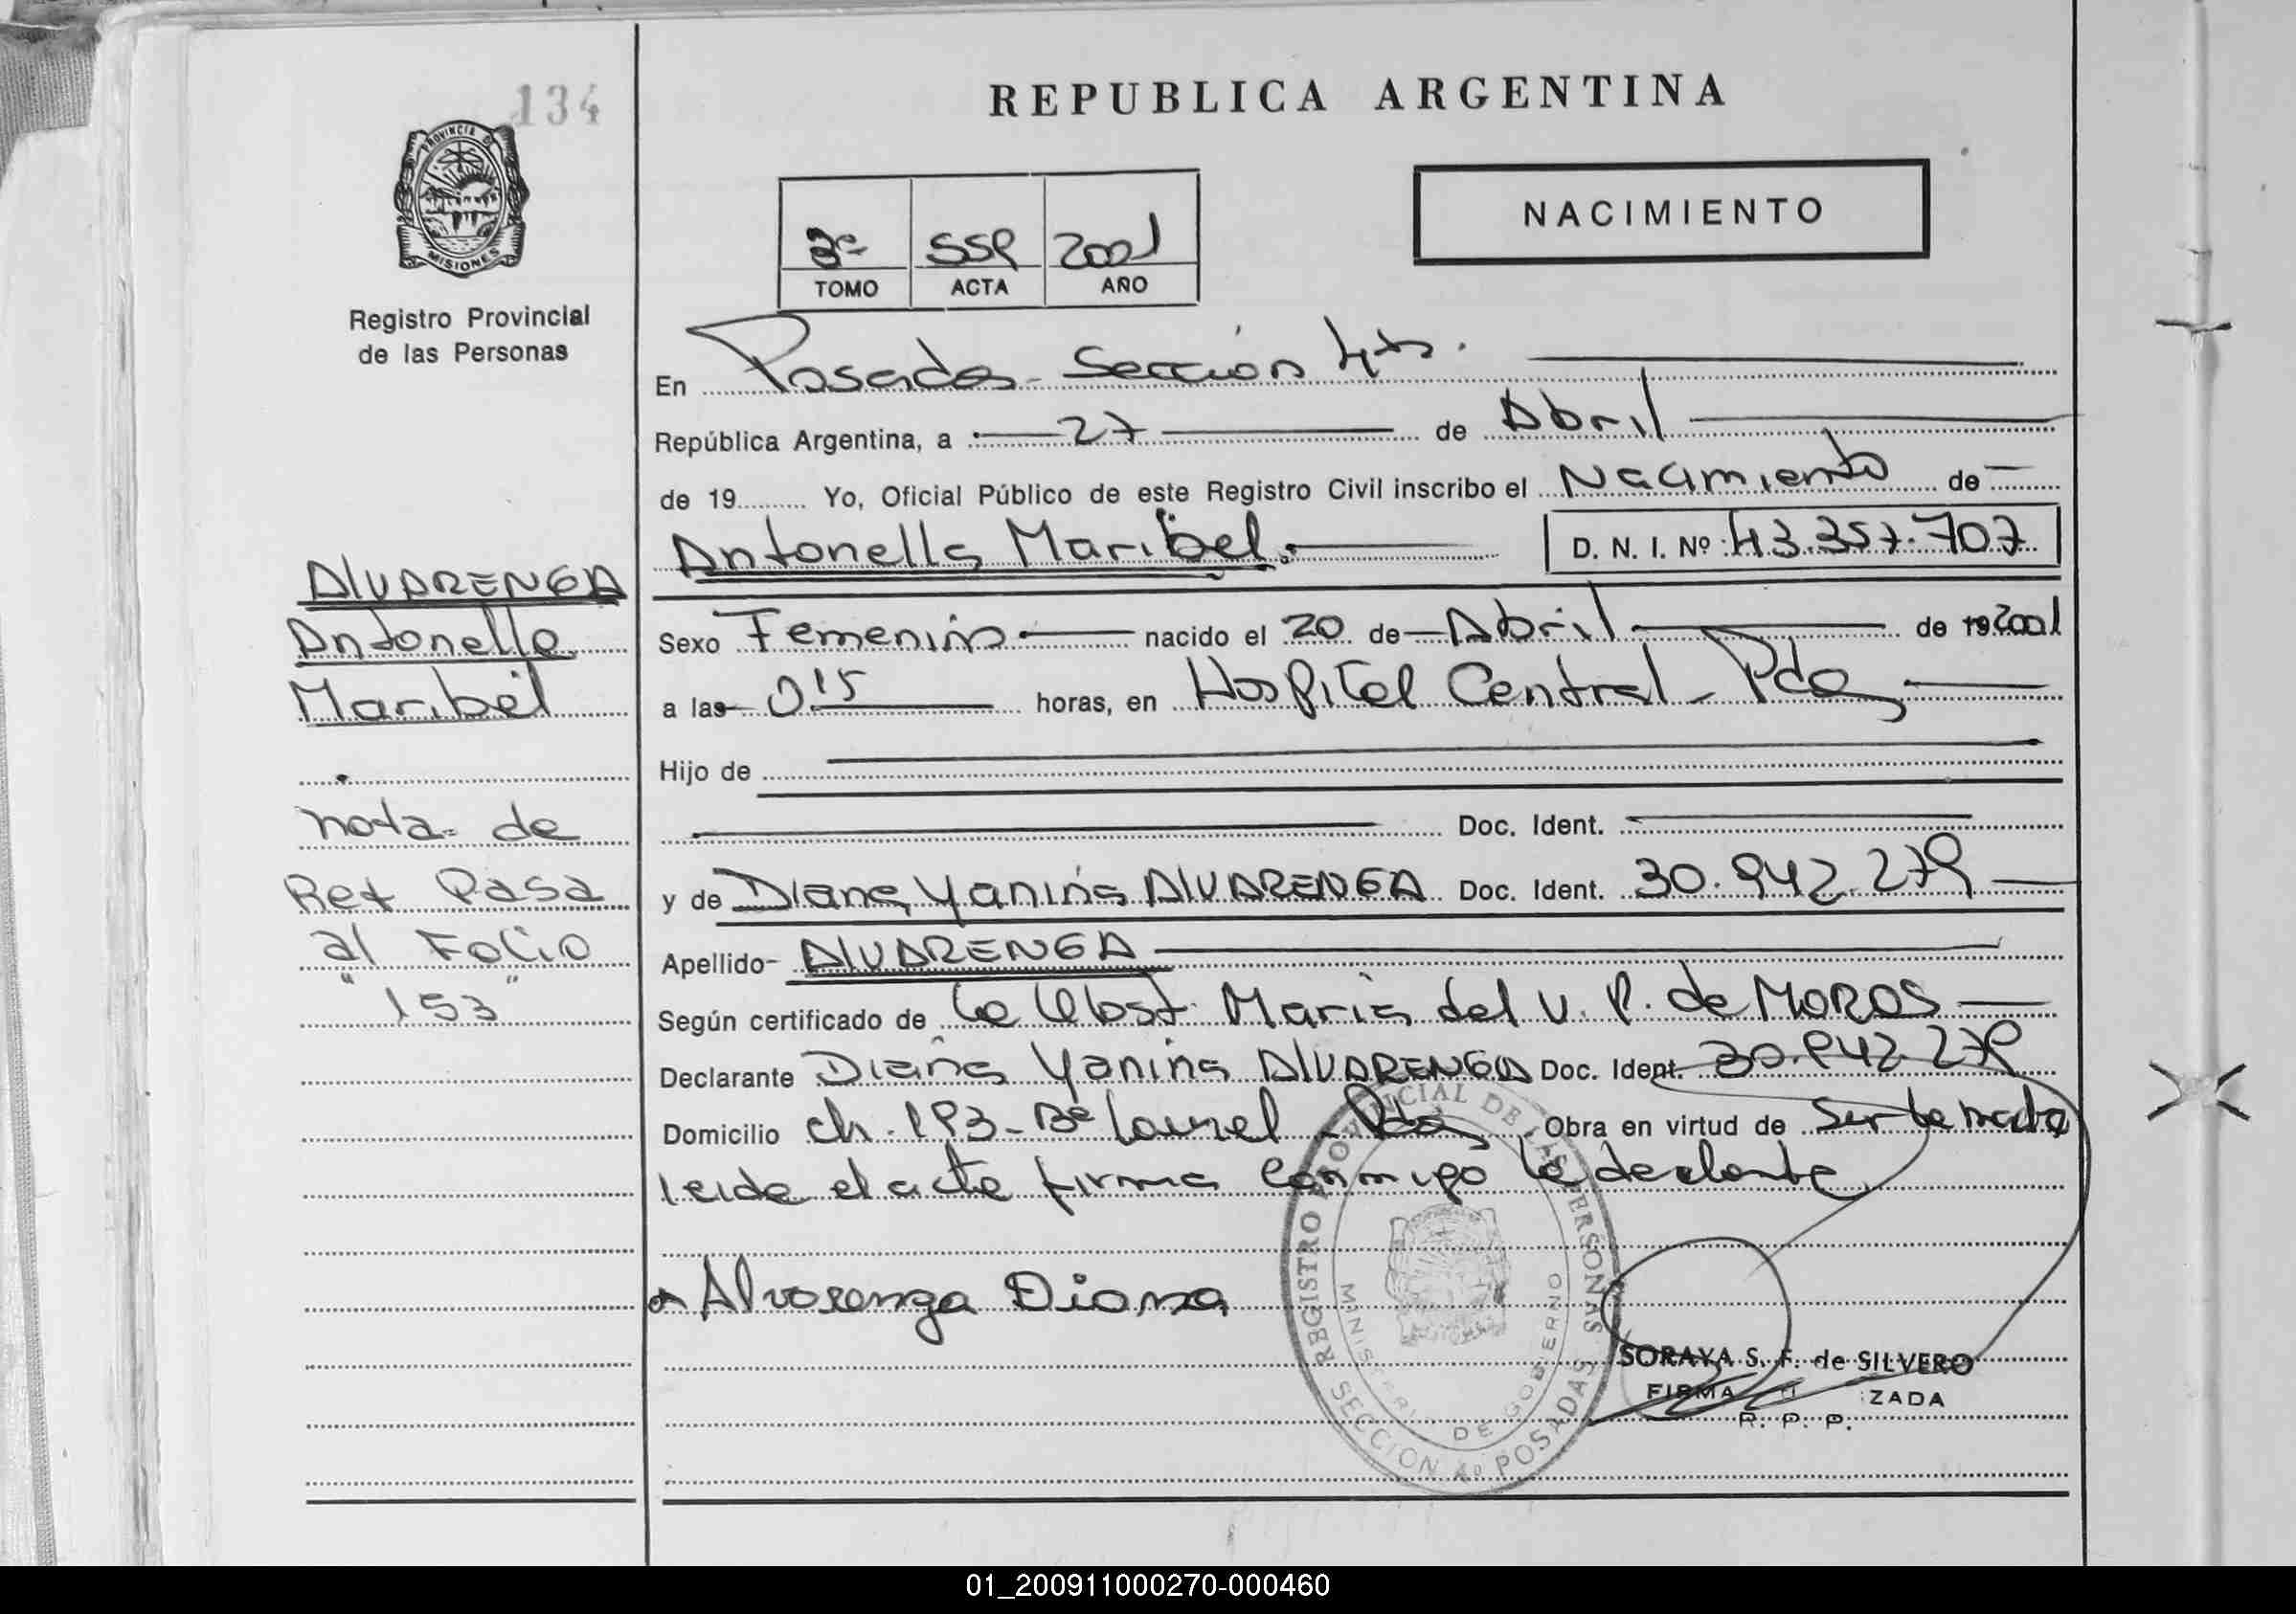 134
REPUBLICA ARGENTINA
PROVINCIA DE
MISIONES
Registro Provincial
de las Personas
NACIMIENTO
3º 2001
TOMO ACTA AÑO
En Posadas - Sección 4ta.
República Argentina, a 27 de Abril
de 19 Yo, Oficial Público de este Registro Civil inscribo el Nacimiento de
Antonella Maribel. D. N. I. Nº 43.357.707
ALVARENGA
Antonella
Maribel
Sexo Femenino nacido el 20 de Abril de 19 2001
a las 0 15 horas, en Hospital Central - Pdas
Hijo de
Doc. Ident.
y de Diana Yanina ALVARENGA Doc. Ident. 30.942.279
Apellido ALVARENGA
Según certificado de la Obst. María del V. P. de MOROS
Declarante Diana Yanina ALVARENGA Doc. Ident. 30.942.279
Domicilio ch. 193 - Bº Laurel - Pdas Obra en virtud de ser la madre
leida el acta firma conmigo la declarante
nota de
Ret Pasa
al Folio
"153"
Alvarenga Diana
REGISTRO PROVINCIAL DE LAS PERSONAS
MINISTERIO DE GOBIERNO
SECCION 4º POSADAS
SORAYA S. F. de SILVERO
FIRMA ZADA
R. P. P.
01_200911000270-000460